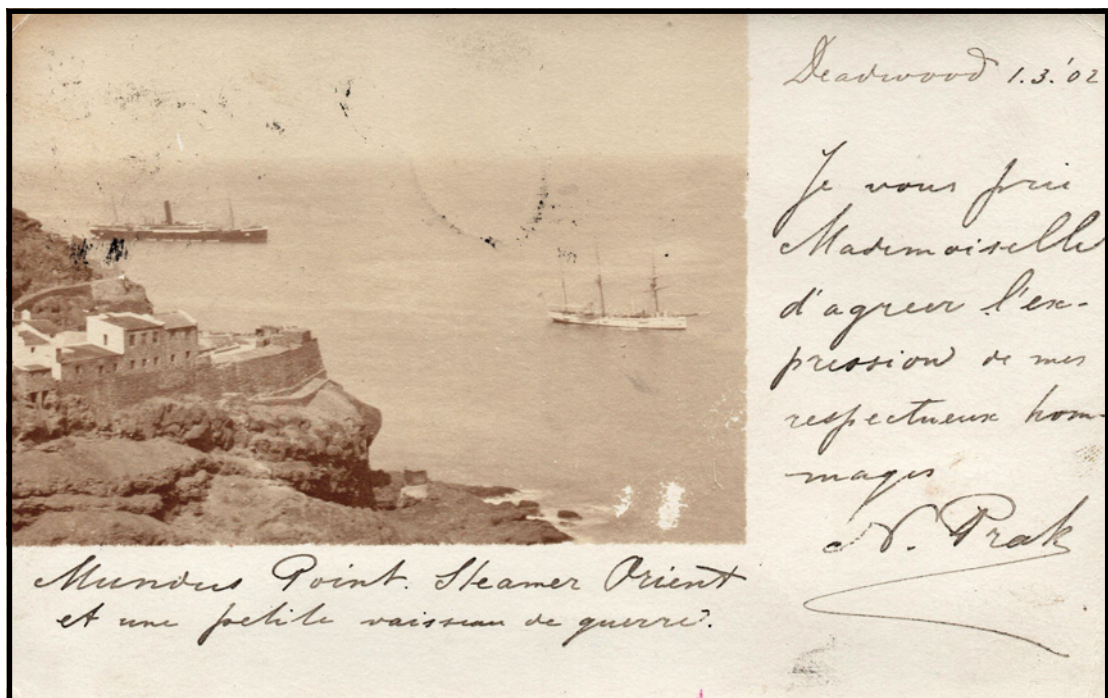 Deadwood 1.3.'02
Je vous prie
Mademoiselle
d'agreer l'ex-
pression de mes
respectueux hom-
mages
N. Prak
Mundus Point. Steamer Orient
et une petite vaisseau de guerre.